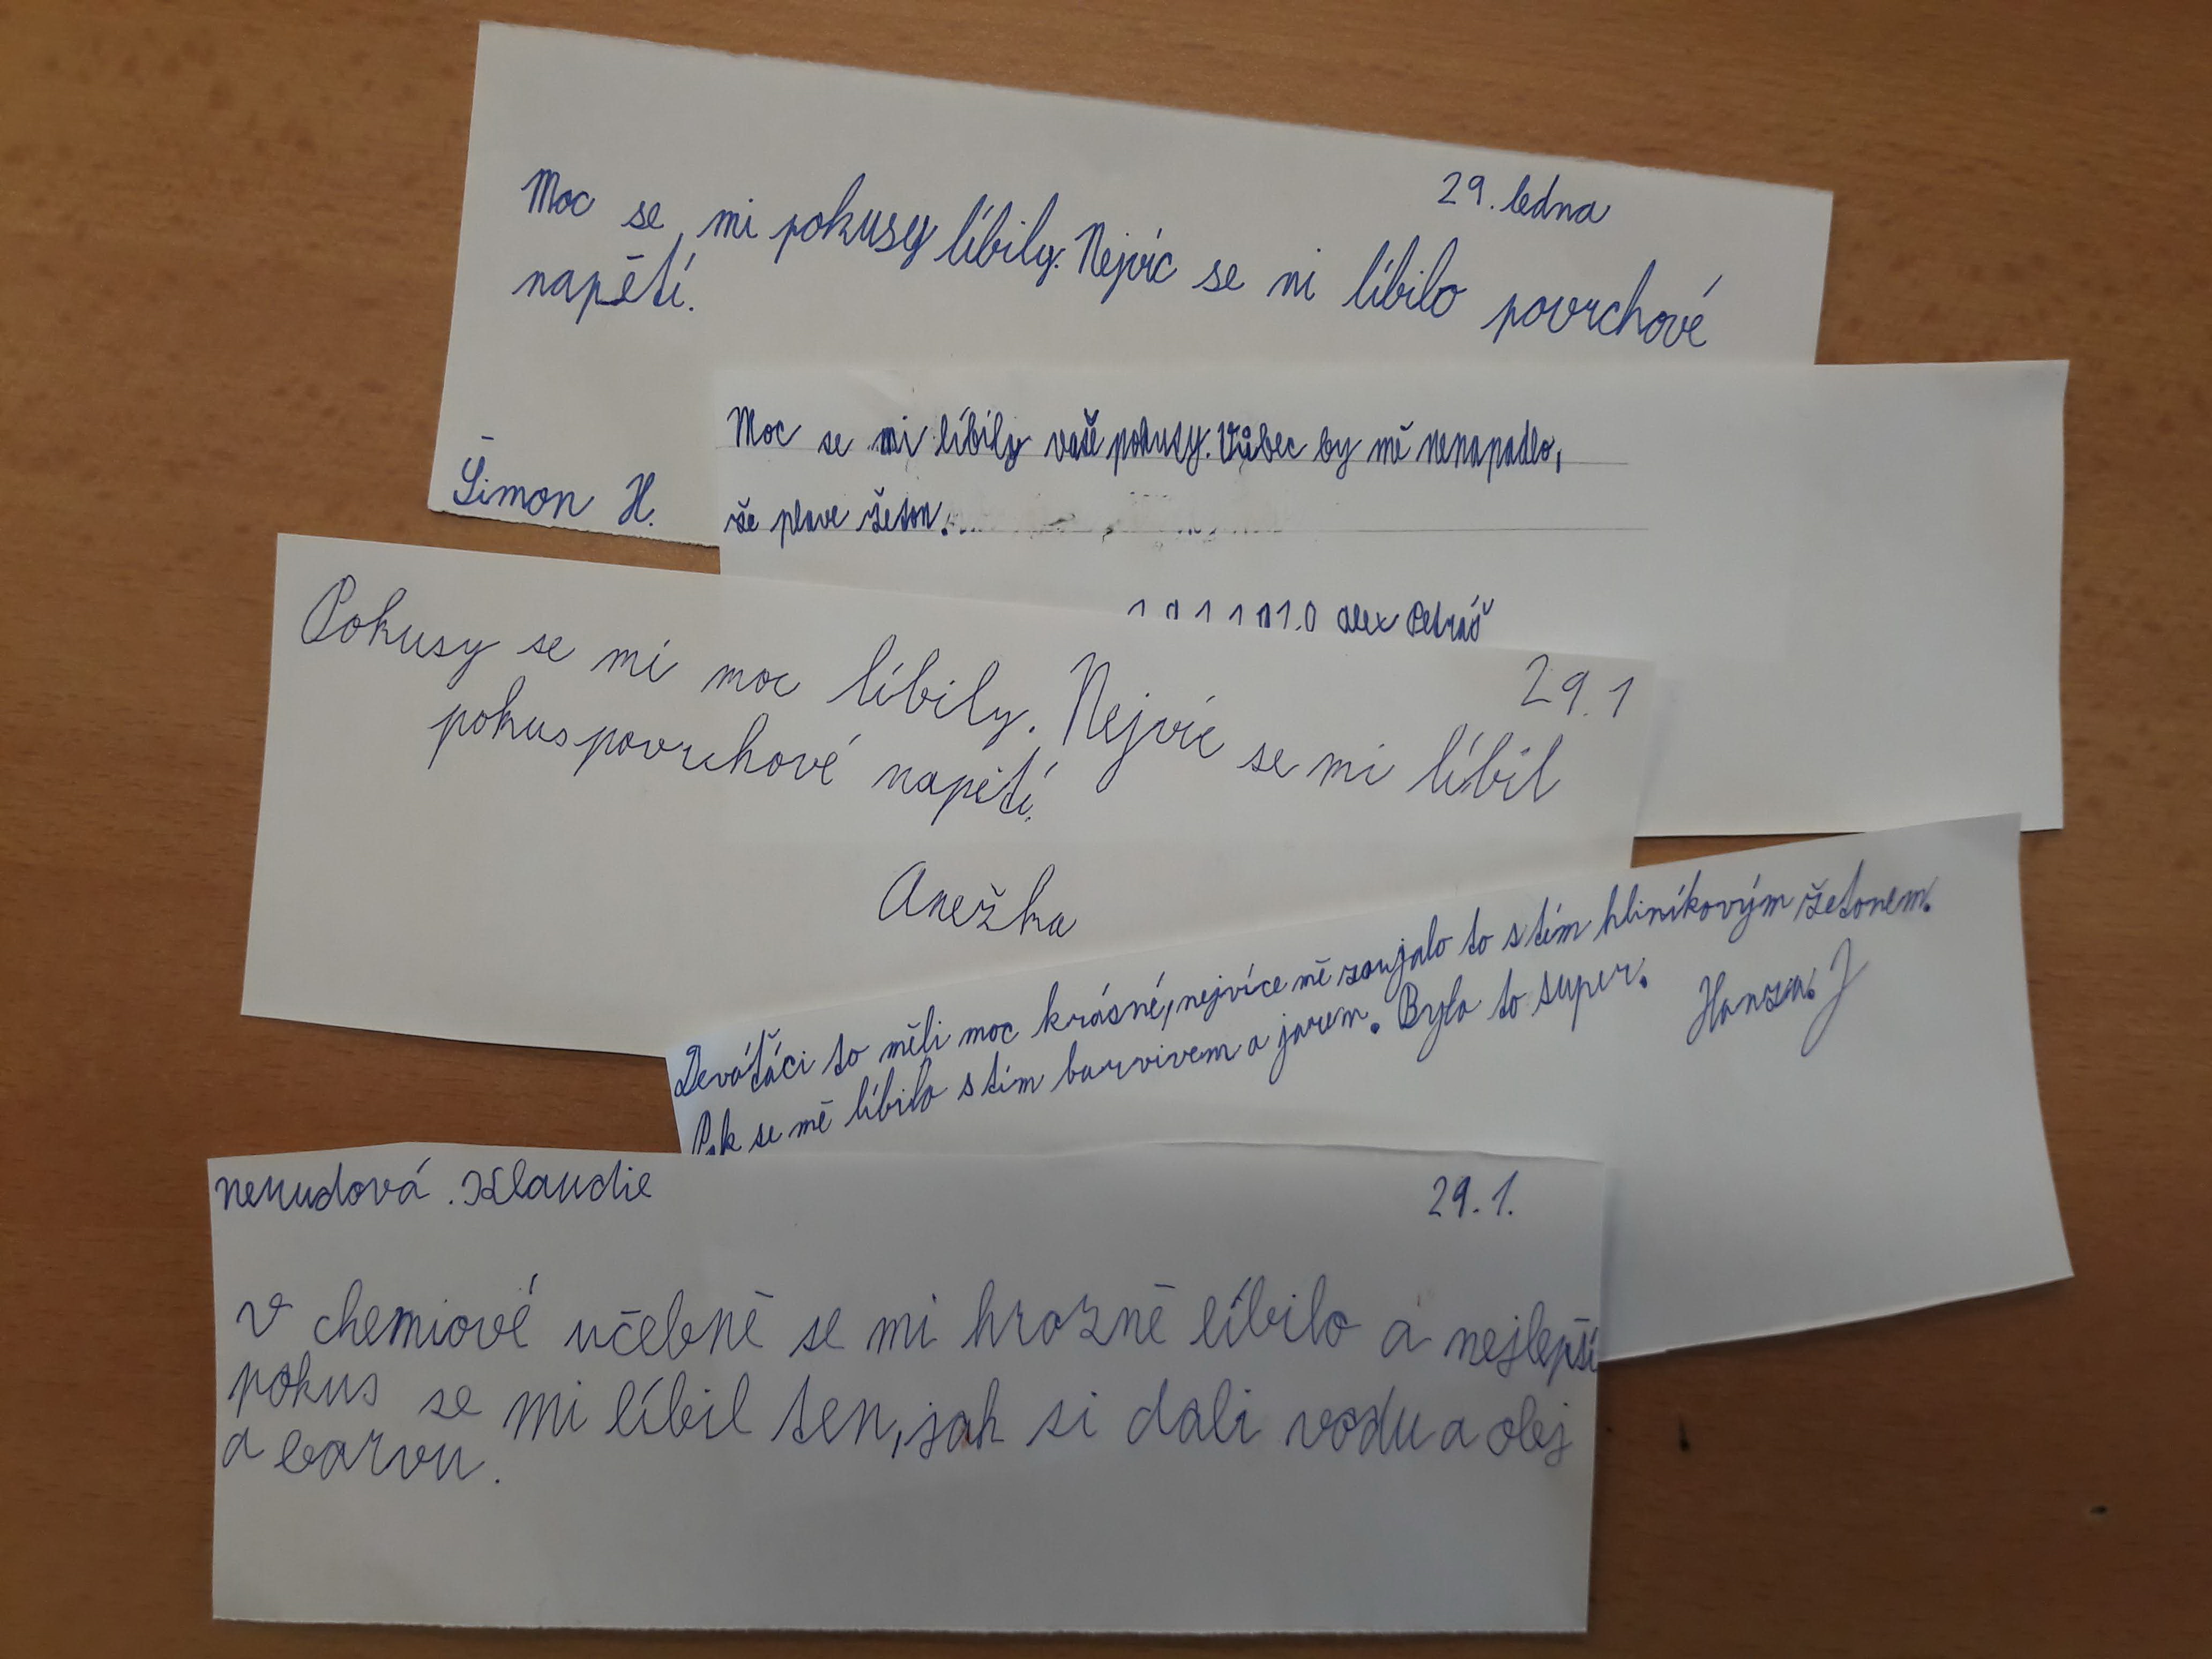 29. ledna
Moc se mi pokusy líbily. Nejvíc se mi líbilo povrchové
napětí.
Šimon H.
Moc se mi líbily vaše pokusy. Vůbec by mě nenapadlo,
že plave žeton.
Alex Petráš
29.1
Pokusy se mi moc líbily. Nejvíc se mi líbil
pokus povrchové napětí.
Anežka
Deváťáci to měli moc krásné, nejvíce mě zaujalo to s tím hliníkovým žetonem.
Pak se mě líbilo s tím barvivem a jarem. Bylo to super.
Honza. J
Nerudová . Klaudie
29.1.
V chemiové učebně se mi hrozně líbilo a nejlepší
pokus se mi líbil ten, jak si dali vodu a olej
a barvu.